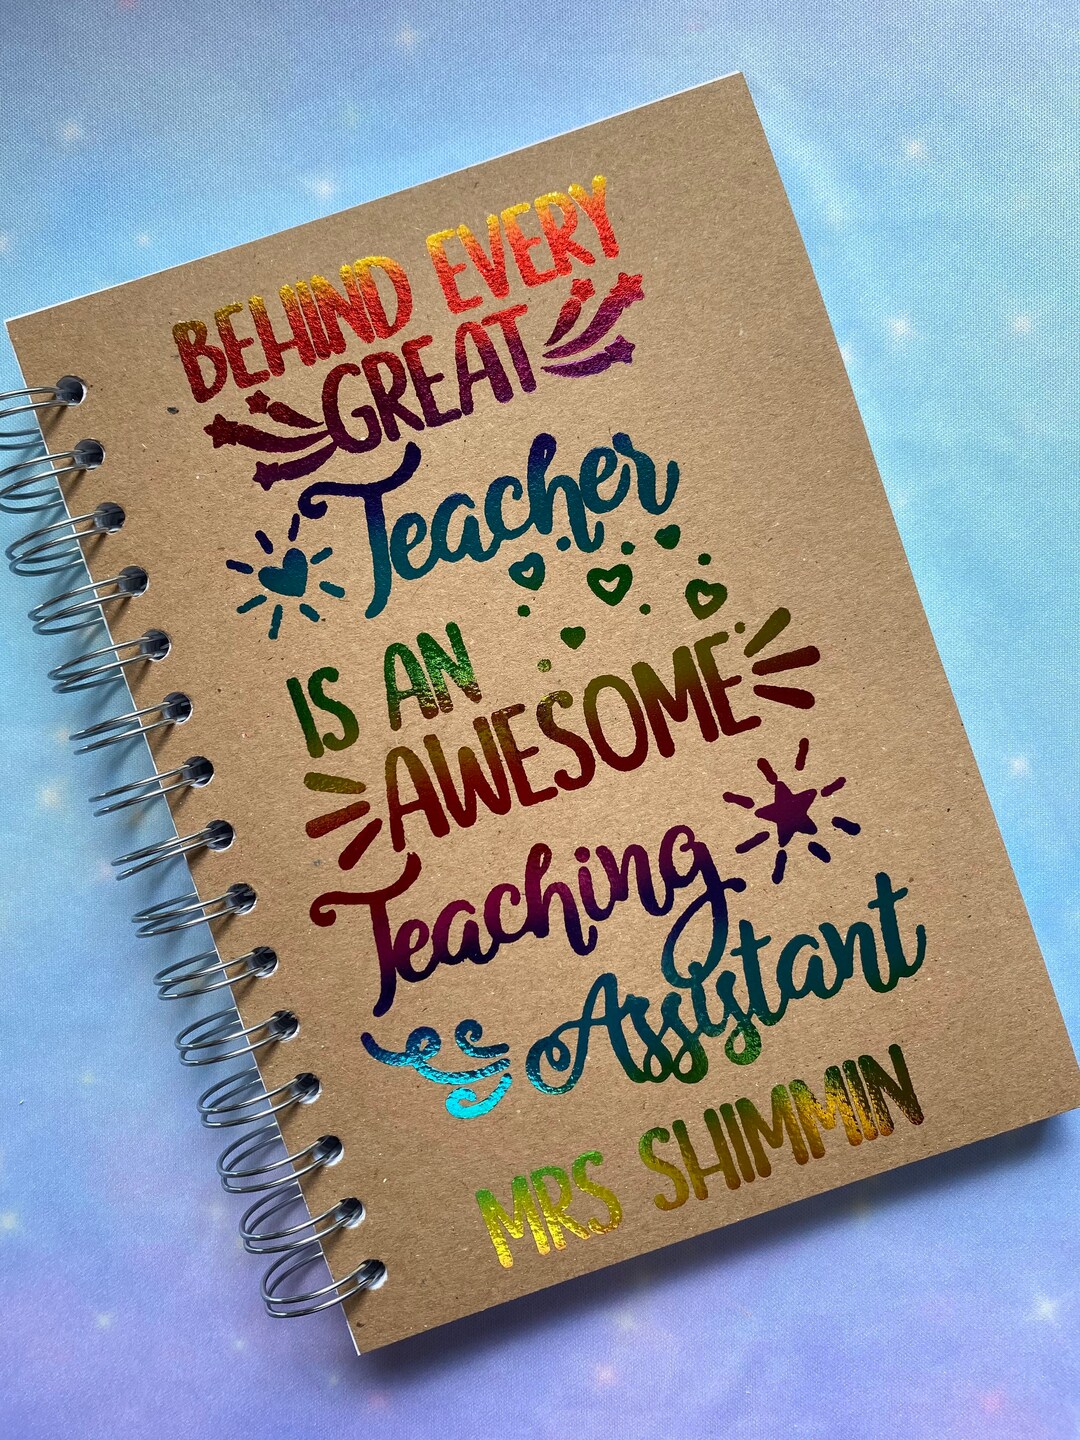 BEHIND EVERY
GREAT
Teacher
IS AN
AWESOME
Teaching
Assistant
MRS SHIMMIN